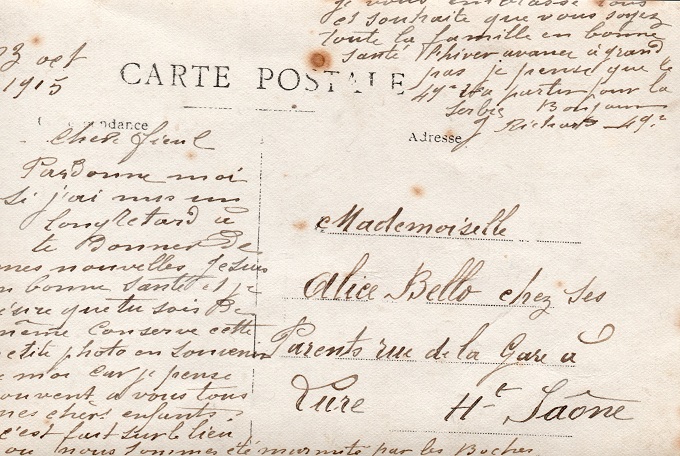 23 oct
1915
CARTE POSTALE
Correspondance
Chere fieul
Pardonne moi
si j'ai mis un
long retard à
te Donner De
mes nouvelles, Je suis
en bonne santé et je
désire que tu sois De
même Conserve cette
petite photo en souvenir
de moi car je pense
souvent a vous tous
mes chers enfants
c'est fait sur le lieu
ou nous sommes été marmité par les Boches
je vous embrasse tous
et souhaite que vous soyez
toute la famille en bonne
santé l'hiver avance à grand
pas je pense que le
49e va partir pour la
Serbie Bonjour
J Richard 49e
Adresse
Mademoiselle
Alice Bello chez ses
Parents rue de la Gare à
Lure Hte Saône